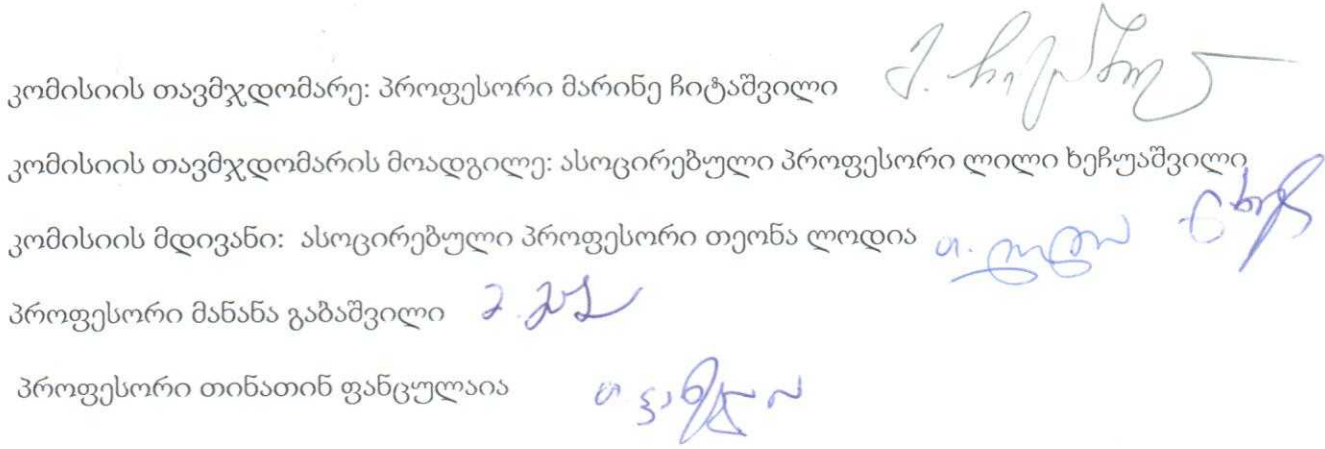 კომისიის თავმჯდომარე: პროფესორი მარინე ჩიტაშვილი
კომისიის თავმჯდომარის მოადგილე: ასოცირებული პროფესორი ლილი ხეჩუაშვილი
კომისიის მდივანი: ასოცირებული პროფესორი თეონა ლოდია
პროფესორი მანანა გაბაშვილი
პროფესორი თინათინ ფანცულაია